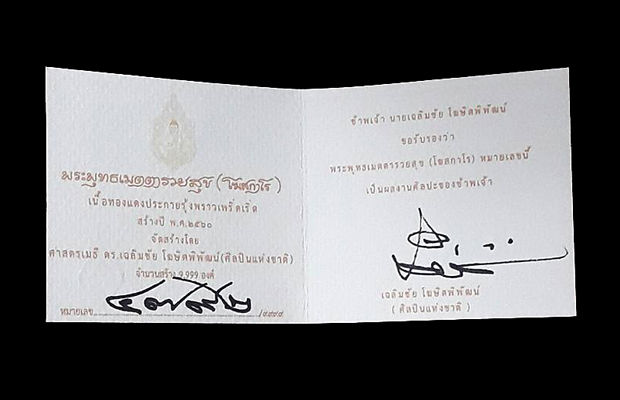 พระพุทธเมตตารวยสุข (โฆสกาโร)
เนื้อทองแดงประกายรุ้งพราวเพริดเริ่ด
สร้างปี พ.ศ.๒๕๖๐
จัดสร้างโดย
ศาสตรเมธี ดร.เฉลิมชัย โฆษิตพิพัฒน์(ศิลปินแห่งชาติ)
จำนวนสร้าง 9,999 องค์
หมายเลข /๙๙๙๙
ข้าพเจ้า นายเฉลิมชัย โฆษิตพิพัฒน์
ขอรับรองว่า
พระพุทธเมตตารวยสุข (โฆสกาโร) หมายเลขนี้
เป็นผลงานศิลปะของข้าพเจ้า
เฉลิมชัย โฆษิตพิพัฒน์
( ศิลปินแห่งชาติ )